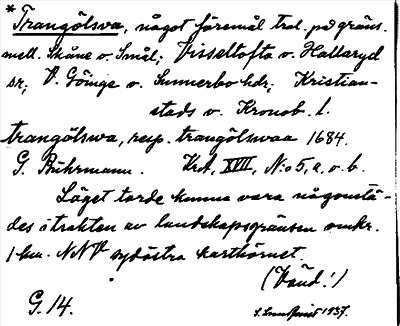 *Trangölsva, något föremål tral. på gräns.
mell. Skåne o. Smål; Visseltofta o. Hallaryd
sr; V. Göinge o. Sunnerbo hdr; Kristian-
stads o. Kronob. l.
trangölswa, resp. trangölswaa 1684.
G. Buhrmann. KrA, XVII, N:o 5, a. o. b.
Läget torde kunna vara någonstä-
des i trakten av landskapsgränsen omkr.
1 km. NNV sydöstra karthörnet.
(Vänd!)
G. 14. S. Lundkvist 1937.